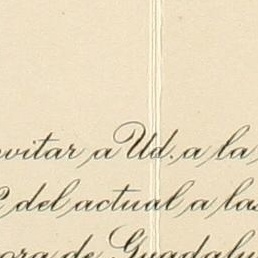 invitar a Ud. a la
del actual a las
ora de Guadalu